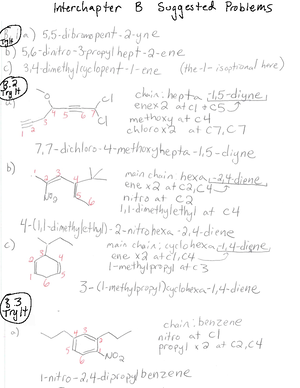 Interchapter B Suggested Problems
Try It a) 5,5-dibromopent-2-yne
b) 5,6-dinitro-3-propylhept-2-ene
c) 3,4-dimethylcyclopent-1-ene (the -1- is optional here)
B.2 Try It
a)
O
Cl
Cl
1 2 3 4 5 6 7
chain: hepta-1,5-diyne
ene x2 at C1 + C5
methoxy at C4
chloro x2 at C7, C7
7,7-dichloro-4-methoxyhepta-1,5-diyne
b)
NO2
main chain: hexa-2,4-diene
ene x2 at C2, C4
nitro at C2
1,1-dimethylethyl at C4
4-(1,1-dimethylethyl)-2-nitrohexa-2,4-diene
c)
main chain: cyclohexa-1,4-diene
ene x2 at C1, C4
1-methylpropyl at C3
3-(1-methylpropyl)cyclohexa-1,4-diene
B.3 Try It
a)
NO2
chain: benzene
nitro at C1
propyl x2 at C2, C4
1-nitro-2,4-dipropylbenzene